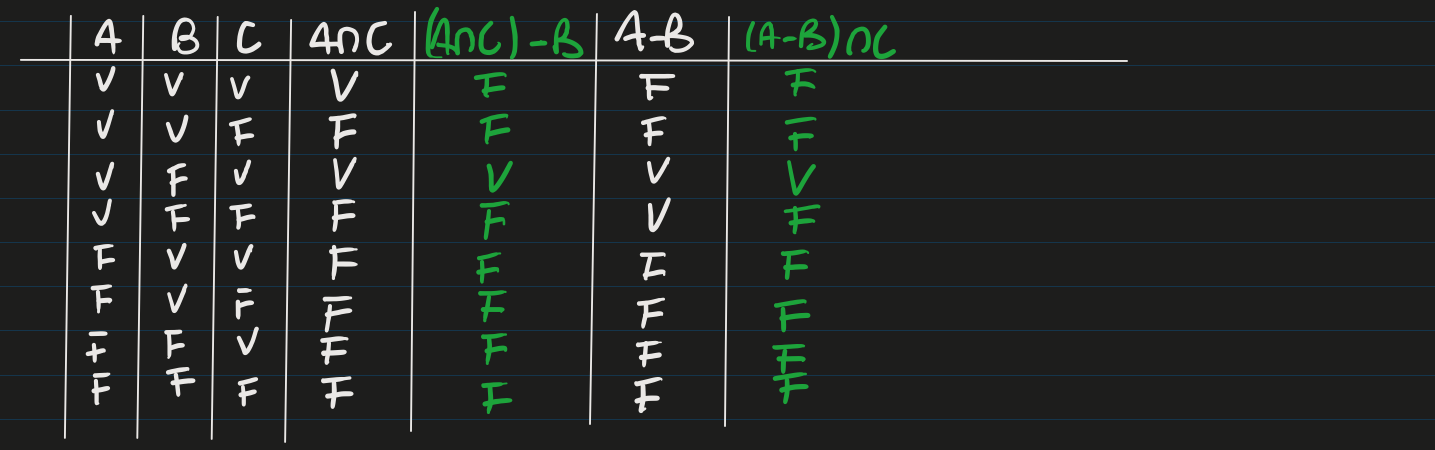 A B C A∩C (A∩C)-B A-B (A-B)∩C
V V V V F F F
V V F F F F F
V F V V V V V
V F F F F V F
F V V F F F F
F V F F F F F
F F V F F F F
F F F F F F F